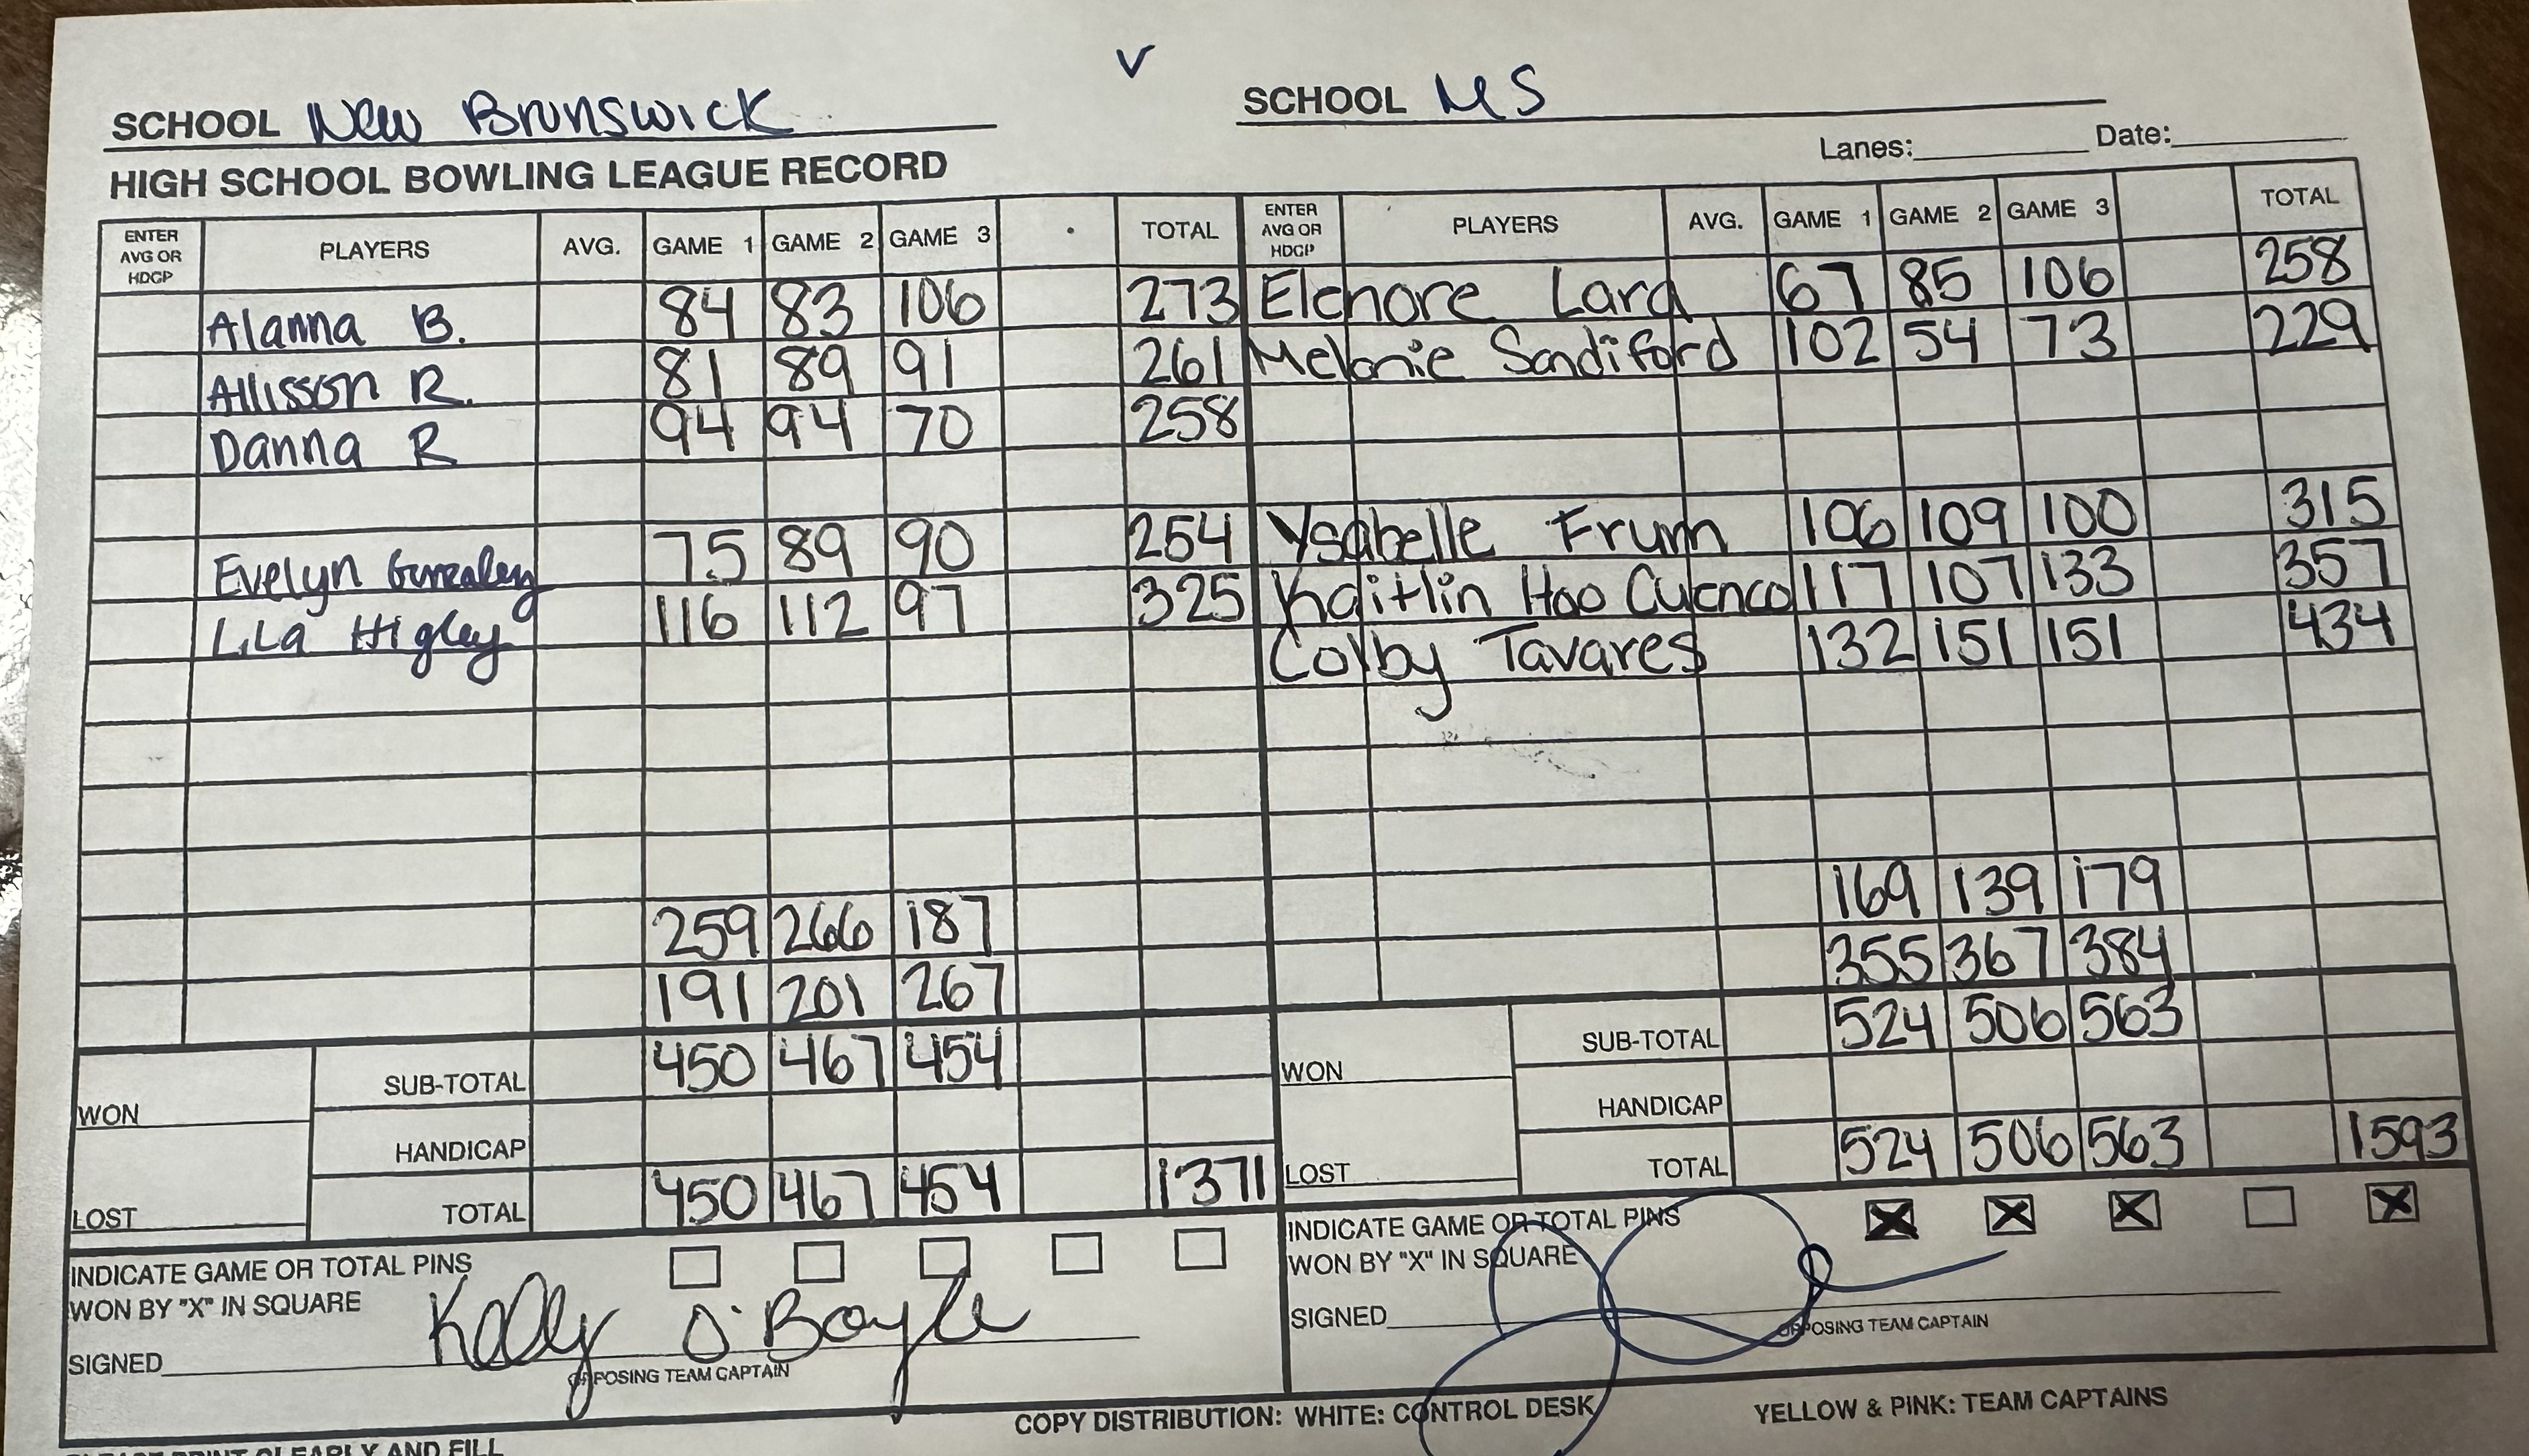 V
SCHOOL New Brunswick SCHOOL MS
Lanes: Date:
HIGH SCHOOL BOWLING LEAGUE RECORD
ENTER AVG OR HDCP PLAYERS AVG. GAME 1 GAME 2 GAME 3 TOTAL ENTER AVG OR HDCP PLAYERS AVG. GAME 1 GAME 2 GAME 3 TOTAL
Alanna B. 84 83 106 273 Elenore Lara 67 85 106 258
Allisson R. 81 89 91 261 Melanie Sandiford 102 54 73 229
Danna R 94 94 70 258
Evelyn 75 89 90 254 Ysabelle Frum 106 109 100 315
Lila Higley 116 112 97 325 Kaitlin Hoo Cuenco 117 107 133 357
Colby Tavares 132 151 151 434
259 266 187 169 139 179
191 201 267 355 367 384
WON SUB-TOTAL 450 467 454 WON SUB-TOTAL 524 506 563
HANDICAP HANDICAP
LOST TOTAL 450 467 454 1371 LOST TOTAL 524 506 563 1593
INDICATE GAME OR TOTAL PINS INDICATE GAME OR TOTAL PINS
WON BY "X" IN SQUARE WON BY "X" IN SQUARE
SIGNED Kelly O'Boyle SIGNED
OPPOSING TEAM CAPTAIN OPPOSING TEAM CAPTAIN
COPY DISTRIBUTION: WHITE: CONTROL DESK YELLOW & PINK: TEAM CAPTAINS
PLEASE PRINT CLEARLY AND FILL